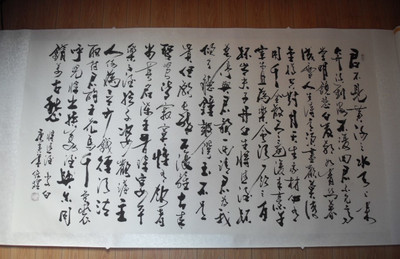 君不見黃河之水天上來
奔流到海不復回君不見高
堂明鏡悲白髮朝如青絲暮
成雪人生得意須盡歡莫使
金樽空對月天生我材必有
用千金散盡還復來烹羊
宰牛且為樂會須一飲三百
杯岑夫子丹丘生將進酒杯
莫停與君歌一曲請君為我
傾耳聽鐘鼓饌玉不足
貴但願長醉不願醒古來
聖賢皆寂寞惟有飲者
留其名陳王昔時宴平
樂斗酒十千恣歡謔主
人何為言少錢徑須沽
取對君酌五花馬千金裘
呼兒將出換美酒與爾同
銷萬古愁
將進酒 李白